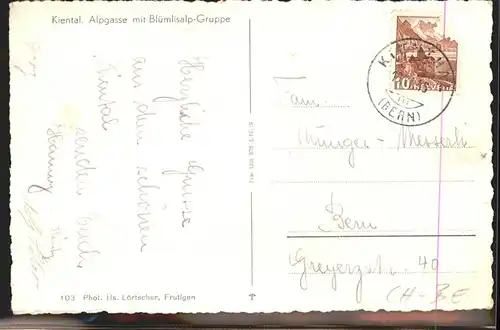 Kiental. Alpgasse mit Blümlisalp-Gruppe
Herzliche Grüsse
aus dem schönen
Kiental
senden Euch
KIENTAL
(BERN)
10 HELVETIA
Fam.
Münger-Messerli
Bern
Greyerzst. 40
CH-BE
103 Phot. Hs. Lörtscher, Frutigen